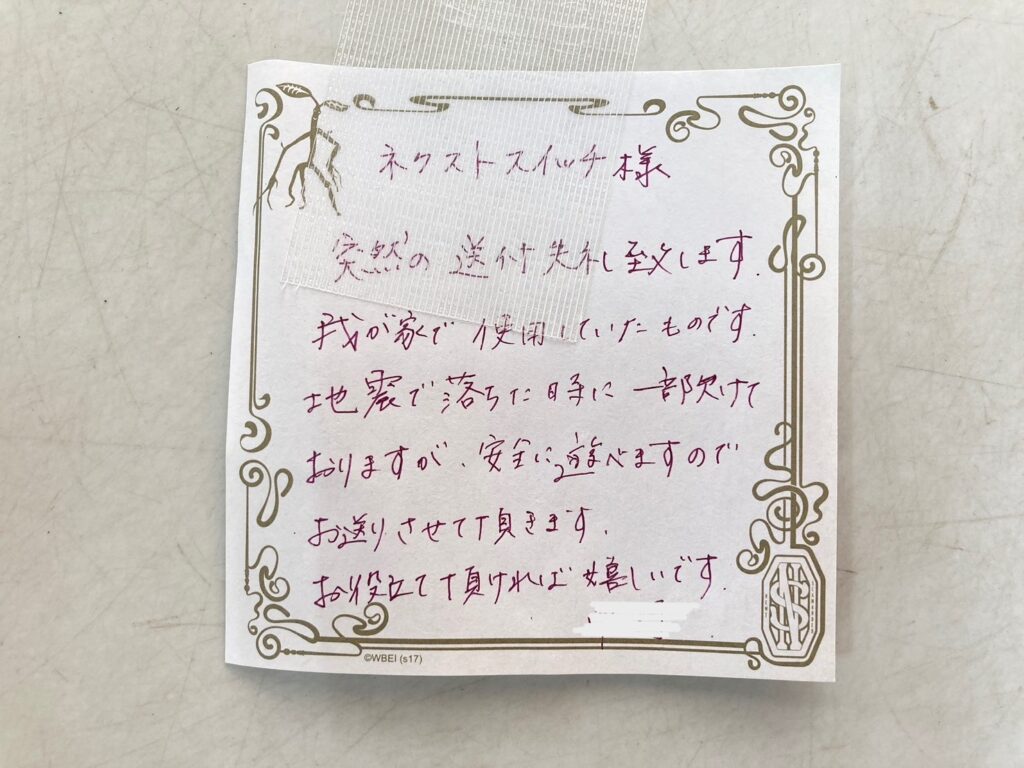 ネクストスイッチ様
突然の送付失礼致します.
我が家で使用していたものです.
地震で落ちた時に一部欠けて
おりますが、安全に遊べますので
お送りさせて頂きます.
お役立て頂ければ嬉しいです.
©WBEI (s17)